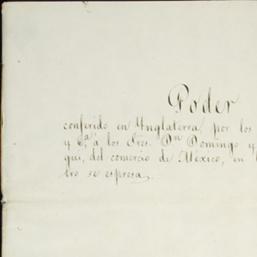 Poder
conferido en Ynglaterra, por los
y Cª. a los Sres. Dn Domingo y
qui, del comercio de México, en
tro se espresa.